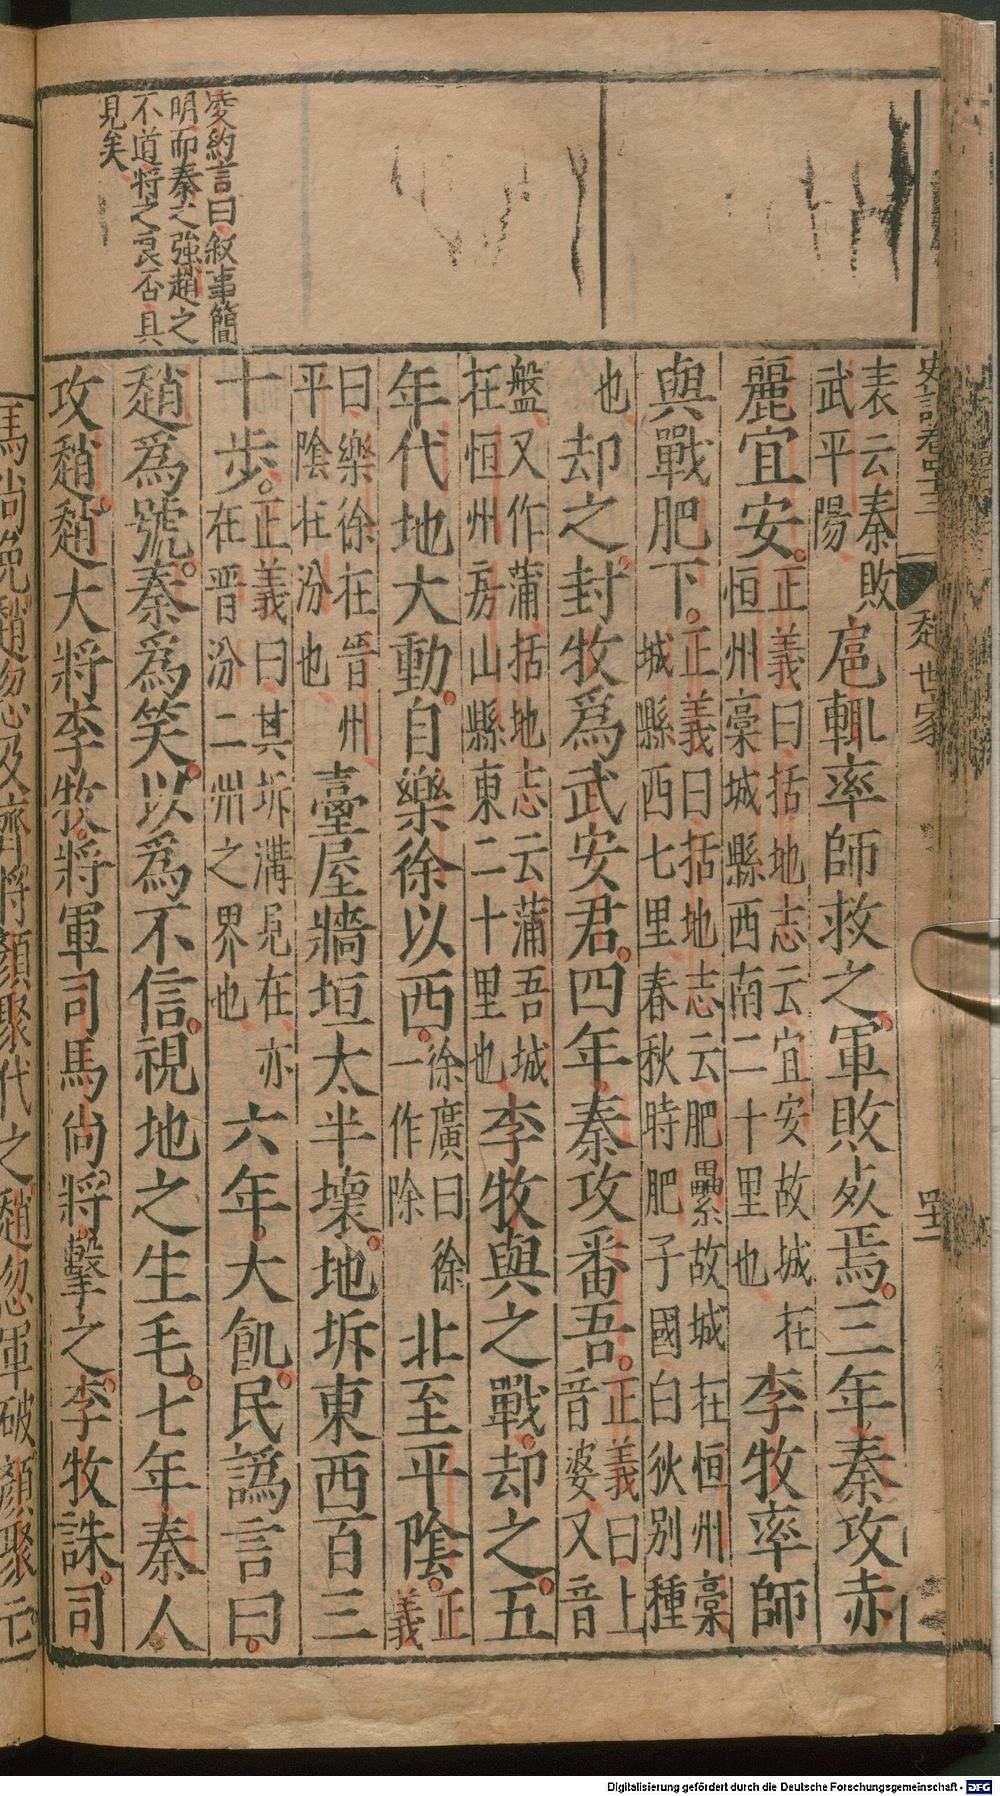 凌約言曰叙事簡
明而秦之強趙之
不道將之良否具
見矣
史記卷四十三 趙世家
表云秦敗
武平陽
扈輒率師救之軍敗死焉三年秦攻赤
麗宜安
正義曰括地志云宜安故城在
恒州槀城縣西南二十里也
李牧率師
與戰肥下
正義曰括地志云肥纍故城在恒州槀
城縣西七里春秋時肥子國白狄別種
也
却之封牧爲武安君四年秦攻番吾
正義曰上
音婆又音
盤又作蒲括地志云蒲吾城
在恒州房山縣東二十里也
李牧與之戰却之五
年代地大動自樂徐以西
徐廣曰徐
一作除
北至平陰
正
義
曰樂徐在晉州
平陰在汾也
臺屋牆垣太半壞地坼東西百三
十步
正義曰其坼溝見在亦
在晋汾二州之界也
六年大飢民譌言曰
趙爲號秦爲笑以爲不信視地之生毛七年秦人
攻趙趙大將李牧將軍司馬尚將擊之李牧誅司
馬尚免趙怱及齊將顏聚代之趙怱軍破顏聚亡
Digitalisierung gefördert durch die Deutsche Forschungsgemeinschaft - DFG